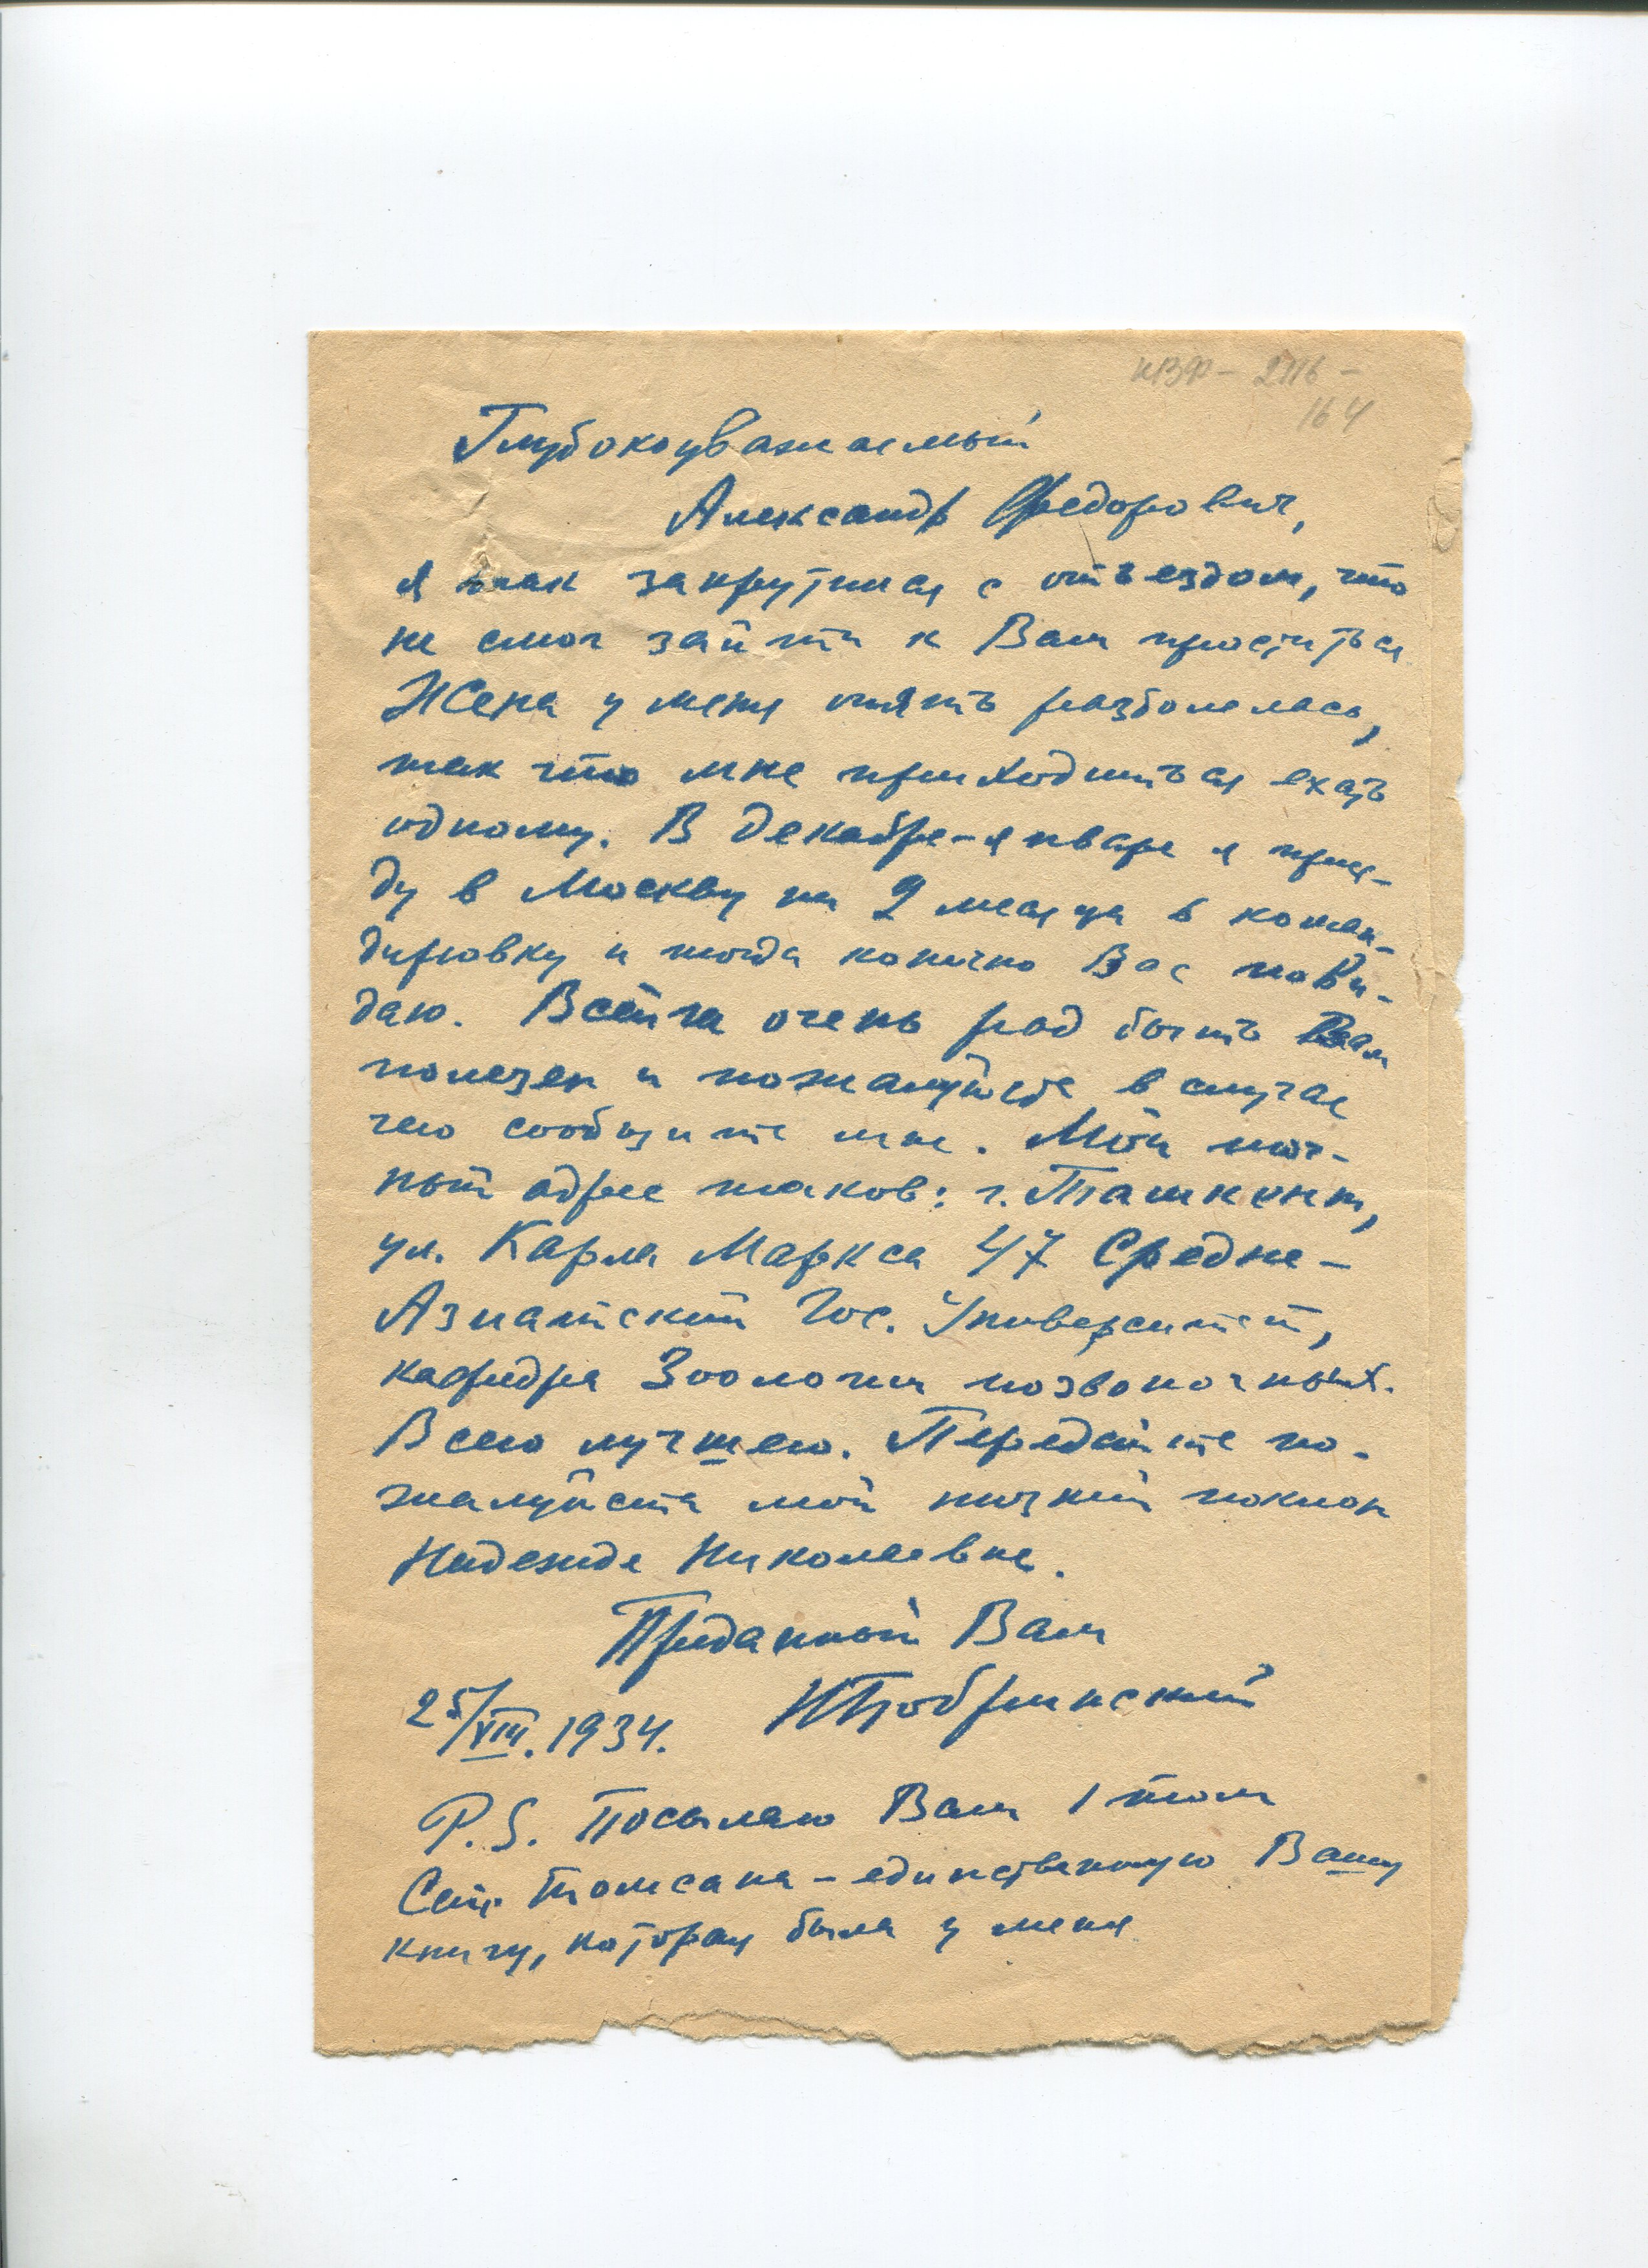 КВФ – 2116 –
164
Глубокоуважаемый
Александр Федорович,
я так закрутился с отъездом, что
не смог зайти к Вам проститься.
Жена у меня опять разболелась,
так что мне приходиться ехать
одному. В декабре-январе я прие-
ду в Москву на 2 месяца в коман-
дировку и тогда конечно Вас пови-
даю. Всегда очень рад быть Вам
полезен и пожалуйста в случае
чего сообщите мне. Мой точ-
ный адрес таков: г. Ташкент,
ул. Карла Маркса 47 Средне-
Азиатский Гос. Университет,
кафедра Зоологии позвоночных.
Всего лучшего. Передайте по-
жалуйста мой низкий поклон
Надежде Николаевне.
Преданный Вам
25/VIII. 1934. НБобринский
P.S. Посылаю Вам 1 том
Сет. Томсона – единственную Вашу
книгу, которая была у меня